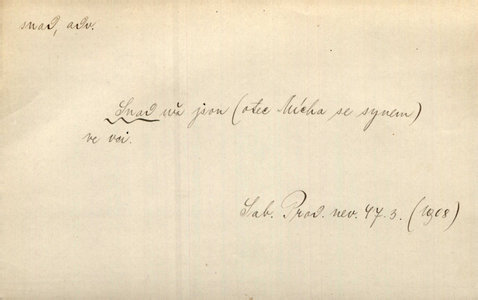 snad, adv.
Snad už jsou (otec Mícha se synem)
ve vsi.
Sab. Prod. nev. 47. 3. (1908)